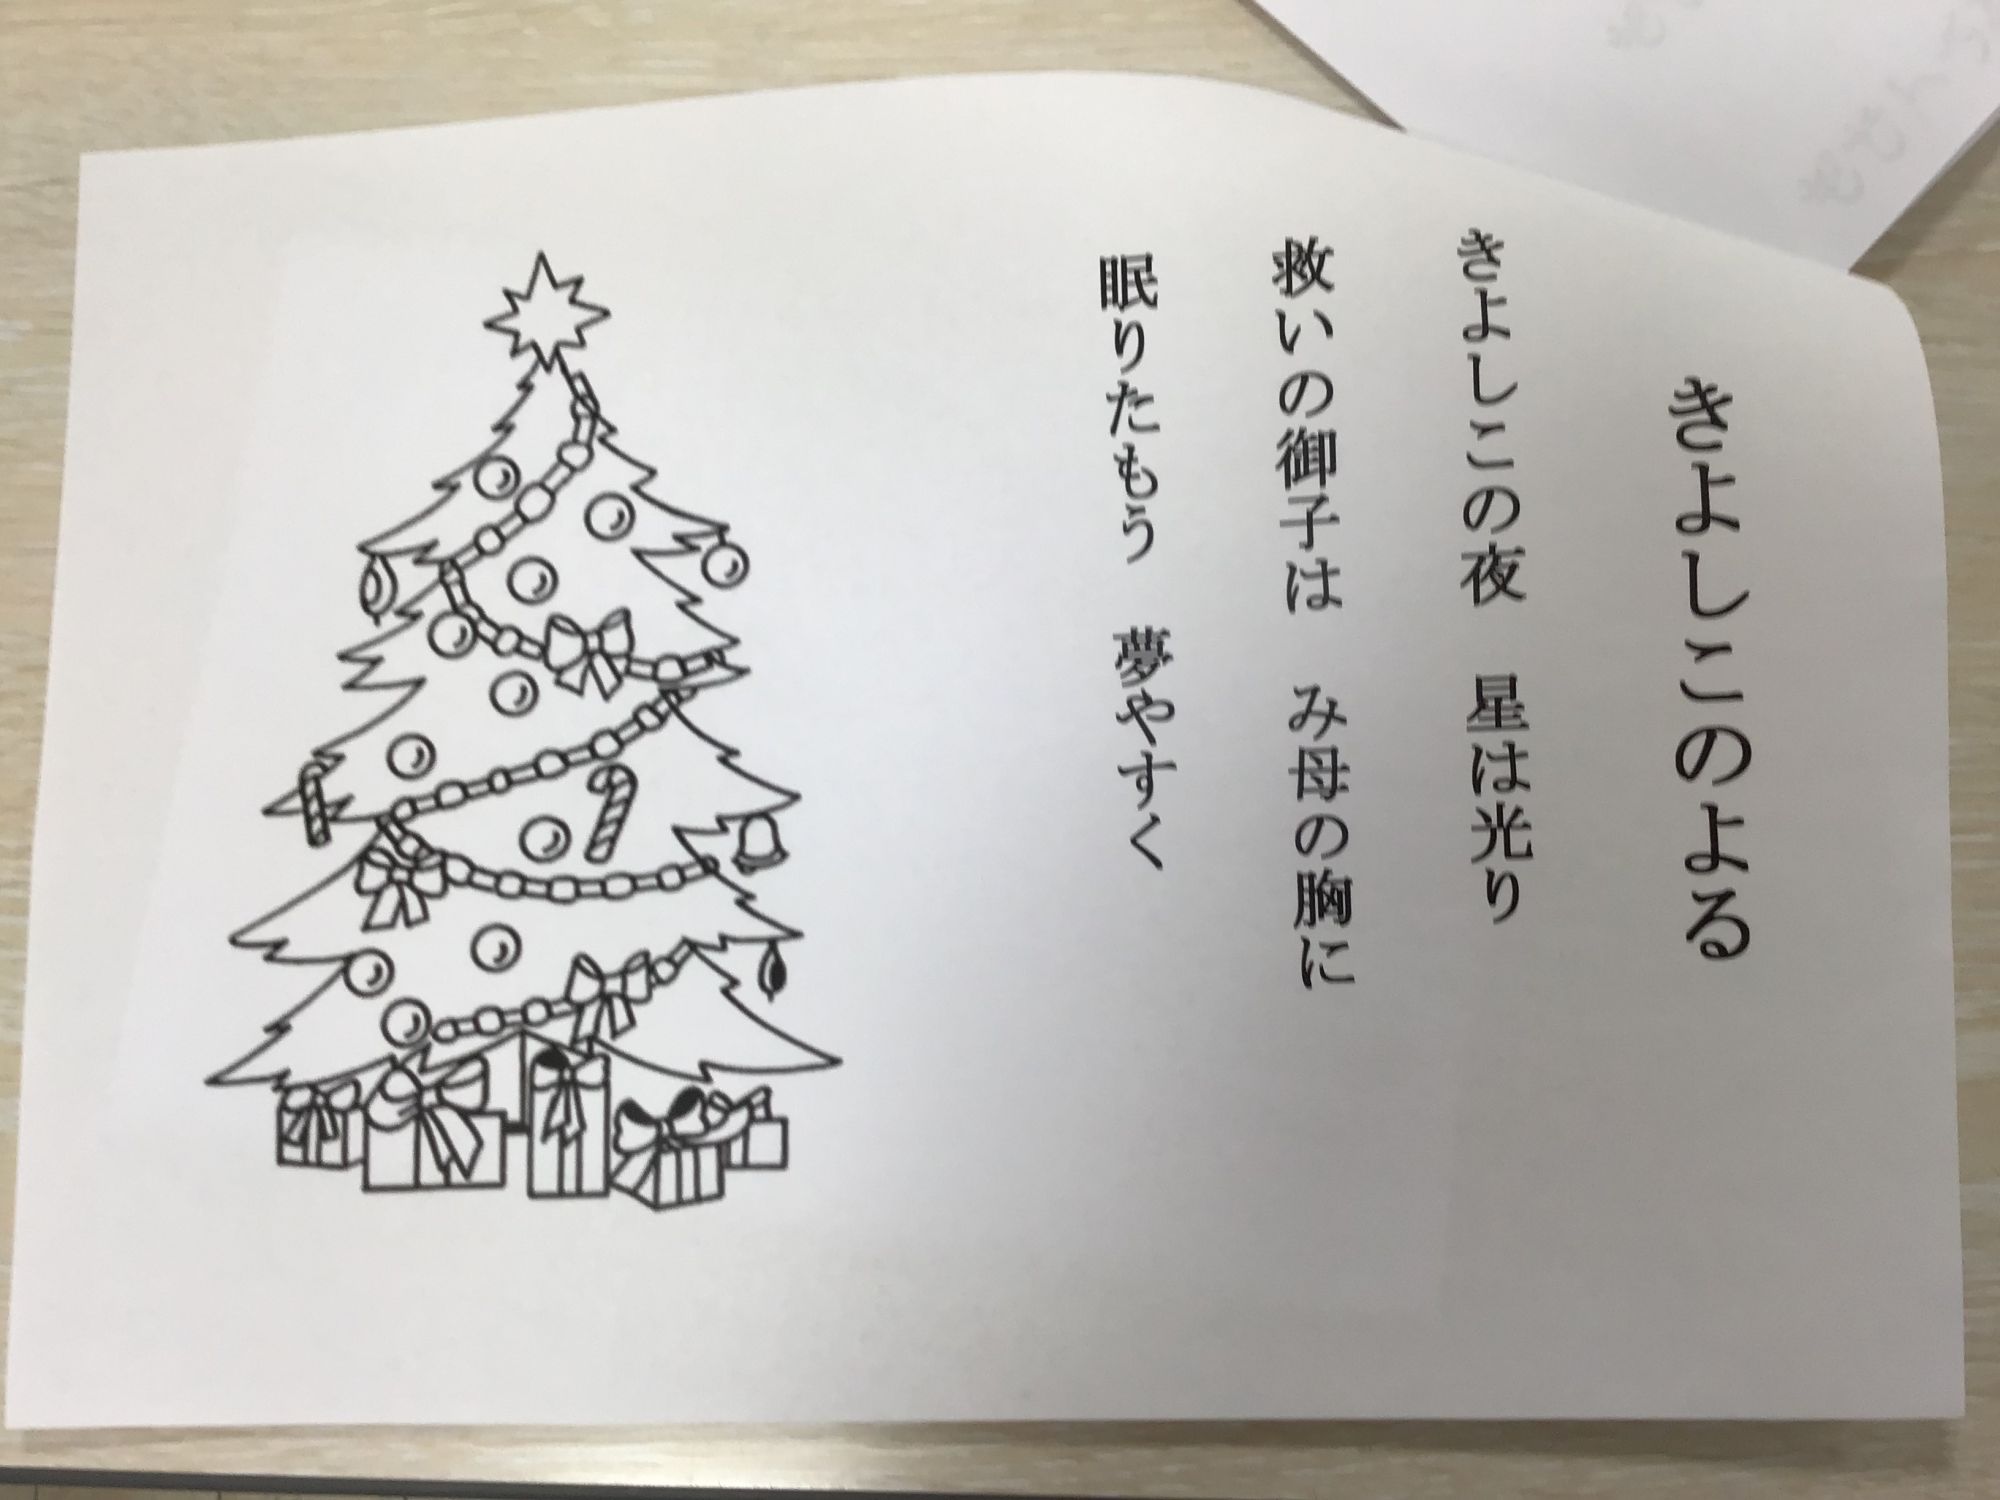 きよしこのよる
きよしこの夜　星は光り
救いの御子は　み母の胸に
眠りたもう　夢やすく